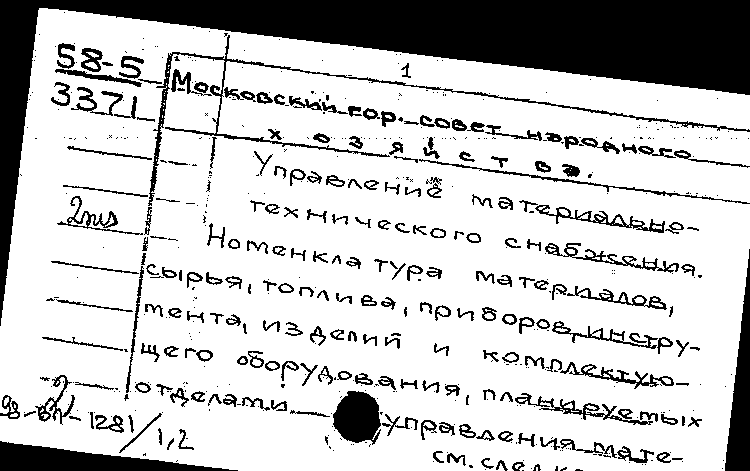 58-5
3371
1
Московский гор. совет народного
хозяйства.
Управление материально-
технического снабжения.
2мз
Номенклатура материалов,
сырья, топлива, приборов, инстру-
мента, изделий и комплектую-
щего оборудования, планируемых
отделами управления мате-
1281/1,2
см. след